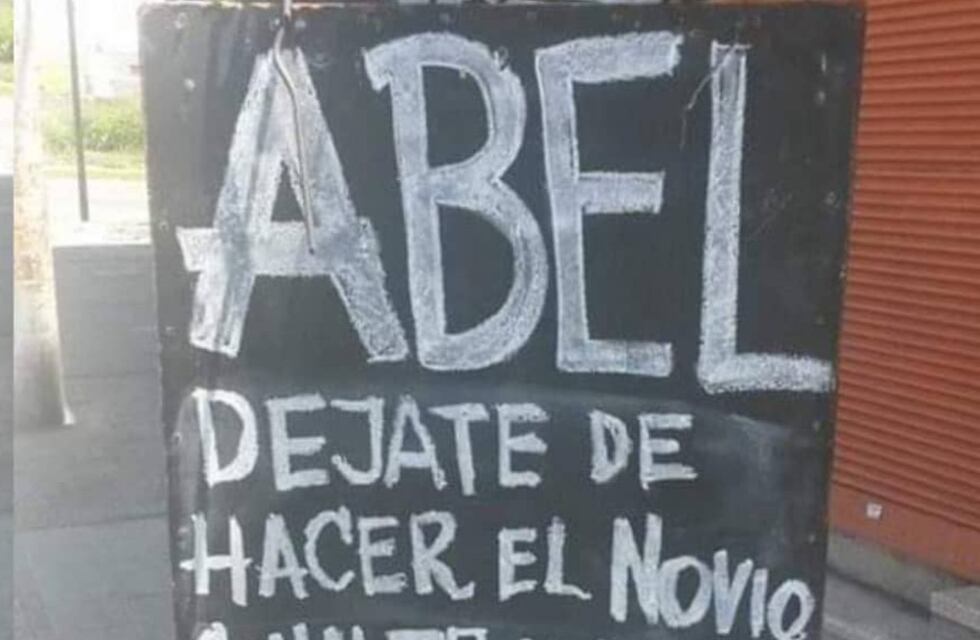 ABEL
DEJATE DE
HACER EL NOVIO